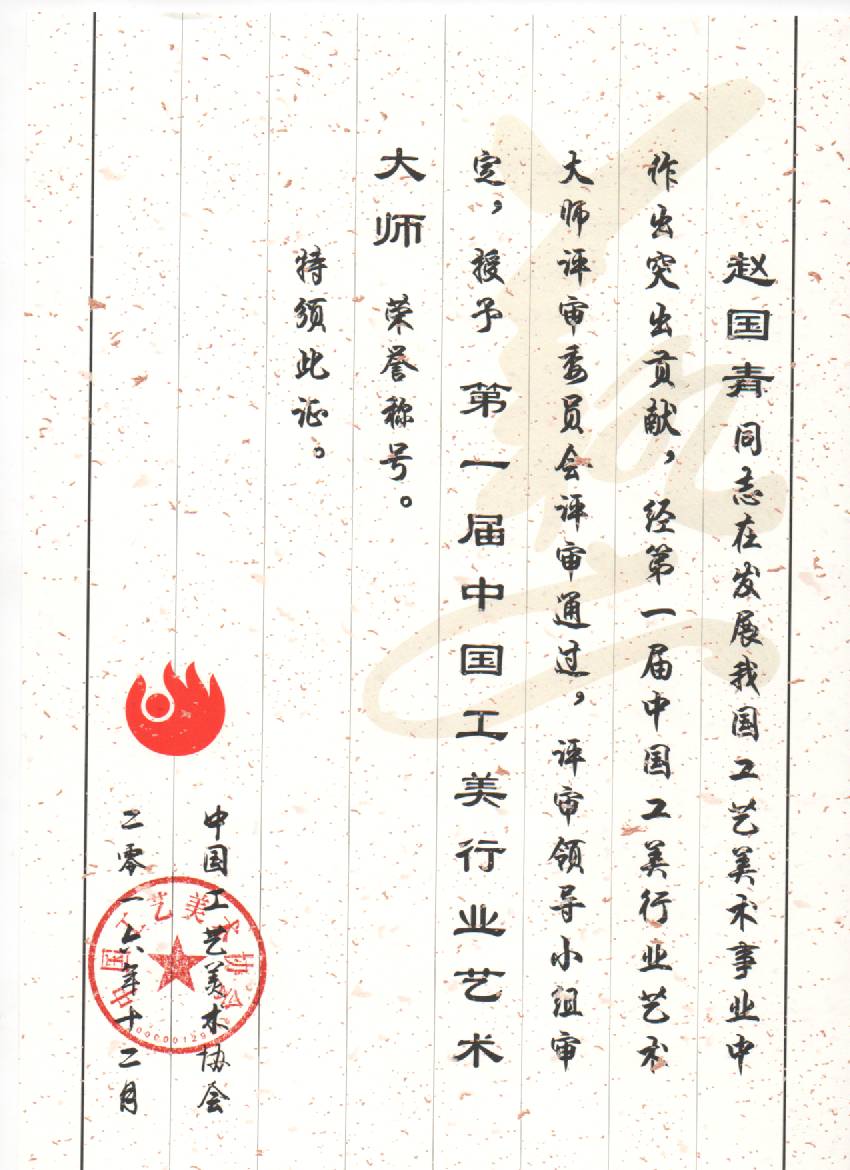 赵国青同志在发展我国工艺美术事业中
作出突出贡献，经第一届中国工美行业艺术
大师评审委员会评审通过，评审领导小组审
定，授予 第一届中国工美行业艺术
大师 荣誉称号。
特颁此证。
中国工艺美术协会
二零一六年十二月
中国工艺美术协会